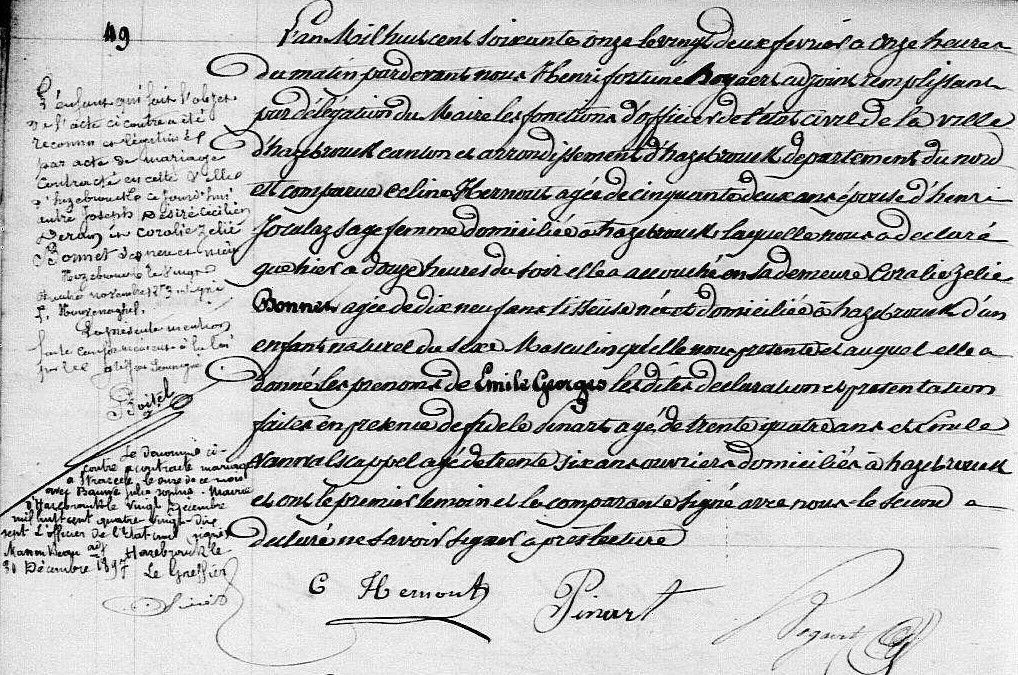 49
L'an Mil huit cent soixante onze le vingt deux fevrier a onze heures
du matin par devant nous Henri fortuné Bogaert adjoint remplissant
par délégation du Maire les fonctions d'officier de l'état civil de la ville
d'hazebrouck canton et arrondissement d'hazebrouck departement du nord
est comparue Celine Hernout agée de cinquante deux ans épouse d'henri
sage femme domiciliée a hazebrouck laquelle nous a declaré
que hier a douze heures du soir elle a accouché en sa demeure Coralie Zelie
Bonnet agée de dix neuf ans née et domiciliée à hazebrouck d'un
enfant naturel du sexe Masculin qu'elle nous presente et auquel elle a
donné les prenoms de Emile Georges les dites declaration et presentation
faites en presence de fidele Pinart agé de trente quatre ans et Emile
agé de trente six ans ouvriers domiciliés à hazebrouck
et ont le premier temoin et la comparante signé avec nous le second a
declaré ne savoir signer apres lecture
C Hernout Pinart Bogaert
L'enfant qui fait l'objet
de l'acte ci contre a été
reconnu et légitimé
par acte de mariage
contracté en cette ville
d'hazebrouck ce jourd'hui
entre Joseph Désiré Cecilien
et Coralie Zelie
Bonnet
Hazebrouck le vingt
novembre signé
La présente mention
faite conformement à la loi
par le Greffier soussigné
Le dénommé ci
contre a contracté mariage
a Strazeele le onze de ce mois
avec julie sophie Mairie
d'Hazebrouck le vingt Décembre
mil huit cent quatre vingt dix
sept L'officier de l'Etat civil signé
adj Hazebrouck le
31 Décembre 1897 Le Greffier